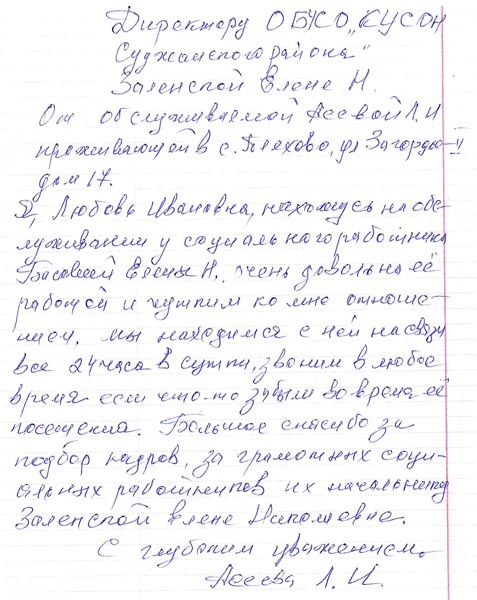 Директору ОБУСО "КЦСОН
Суджанского района"
Заленской Елене Н.
От обслуживаемой Асевой Л.И
проживающей в с. Плёхово, ул Загордо-
дом 17.
Я, Любовь Ивановна, нахожусь на обс-
луживании у социального работника
Елены Н., очень довольна её
работой и чутким ко мне отноше-
нием. Мы находимся с ней на связи
все 24 часа в сутки, звоним в любое
время если что-то забыли во время её
посещения. Большое спасибо за
подбор кадров, за грамотных соци-
альных работников их начальнику
Заленской Елене Николаевне.
С глубоким уважением.
Асеева Л. И.